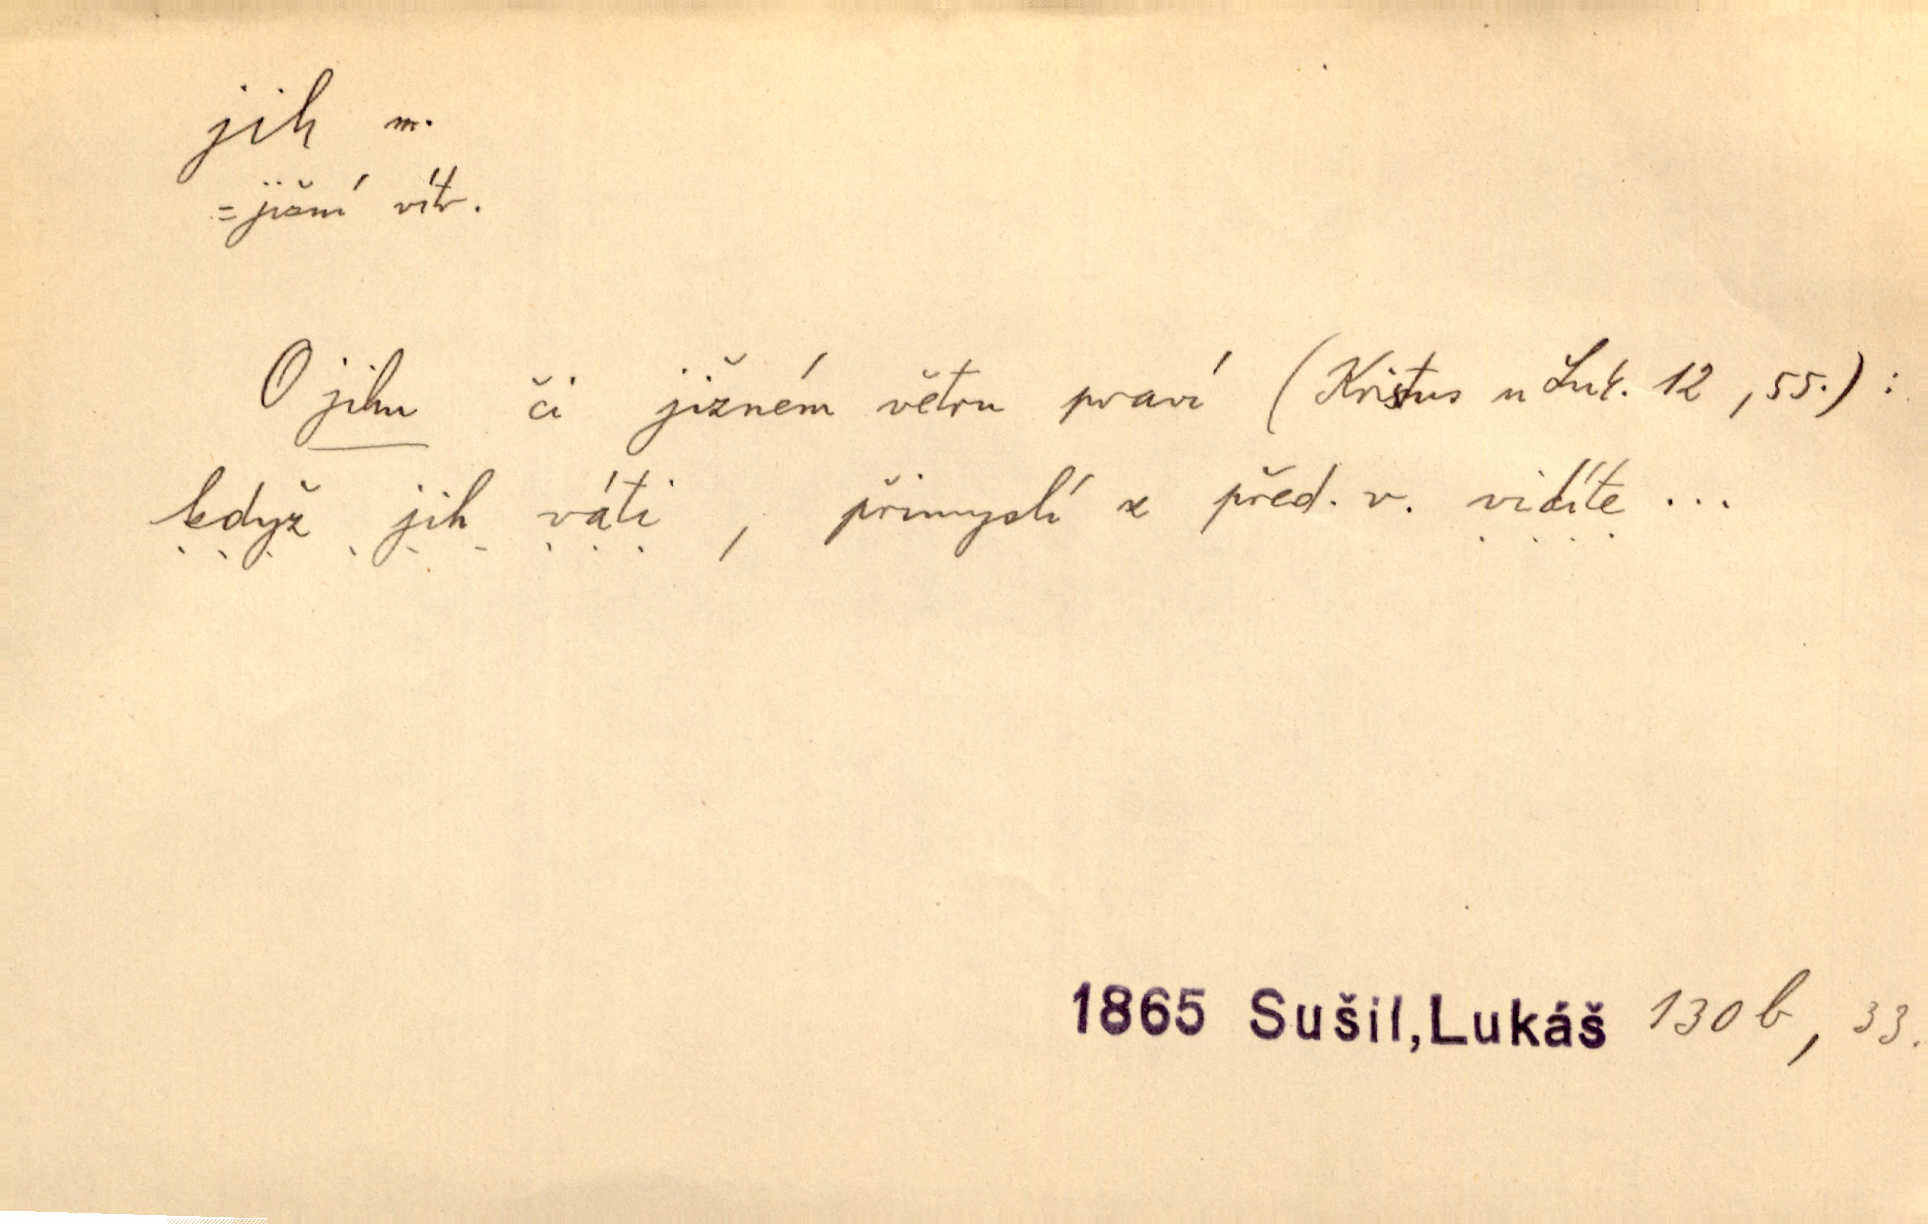 jih m.
= jižní vítr.
O jihu či jižném větru praví (Kristus u Luk. 12, 55.):
když jih váti, přimyslí z před. v. vidíte ...
1865 Sušil, Lukáš 130 b, 33.